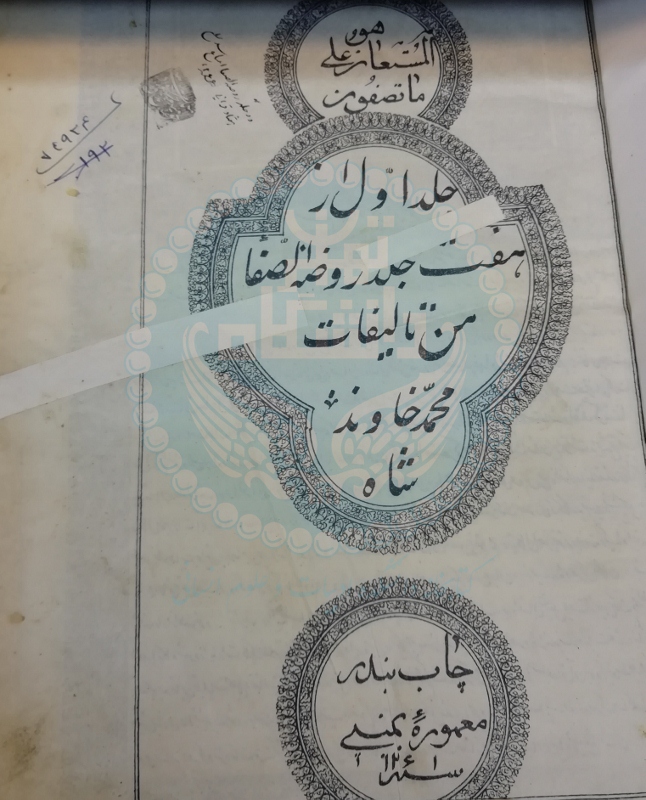 هو
المستعان علی
ما تصفون
جلد اول از
هفت جلد روضه الصفا
من تالیفات
محمد خاوند
شاه
چاپ بندر
معمورهٔ بمبئی
سنه ۱۲۶۱
۷۴۹۲۴
۱۹۲
تهران
دانشگاه